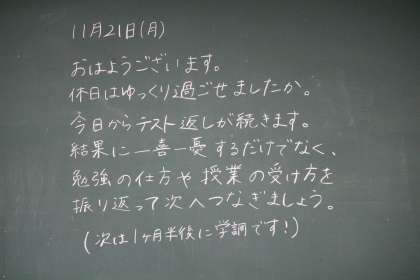 11月21日(月)
おはようございます。
休日はゆっくり過ごせましたか。
今日からテスト返しが続きます。
結果に一喜一憂するだけでなく、
勉強の仕方や授業の受け方を
振り返って次へつなぎましょう。
(次は1ヶ月半後に学調です!)